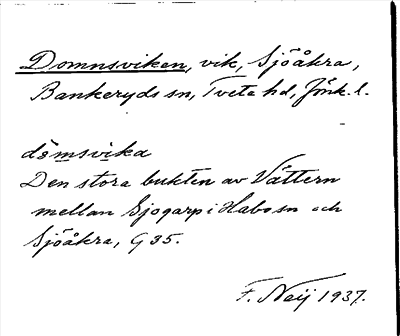 Domnsviken, vik, Sjöåkra,
Bankeryds sn, Tveta hd, Jönk. l.
dömsvika
Den stora bukten av Vättern
mellan Sjogarp i Habo sn och
Sjöåkra, G 35.
F. Neij 1937.